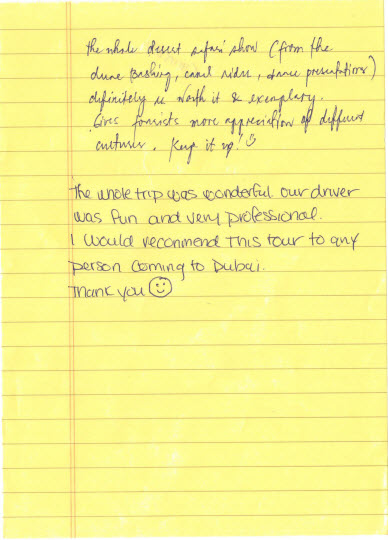 the whole desert safari show (from the
dune bashing, camel rides, dance presentations)
definitely is worth it & exemplary.
Gives tourists more appreciation of different
cultures. Keep it up!
The whole trip was wonderful our driver
was fun and very professional.
I would recommend this tour to any
person coming to Dubai.
Thank you